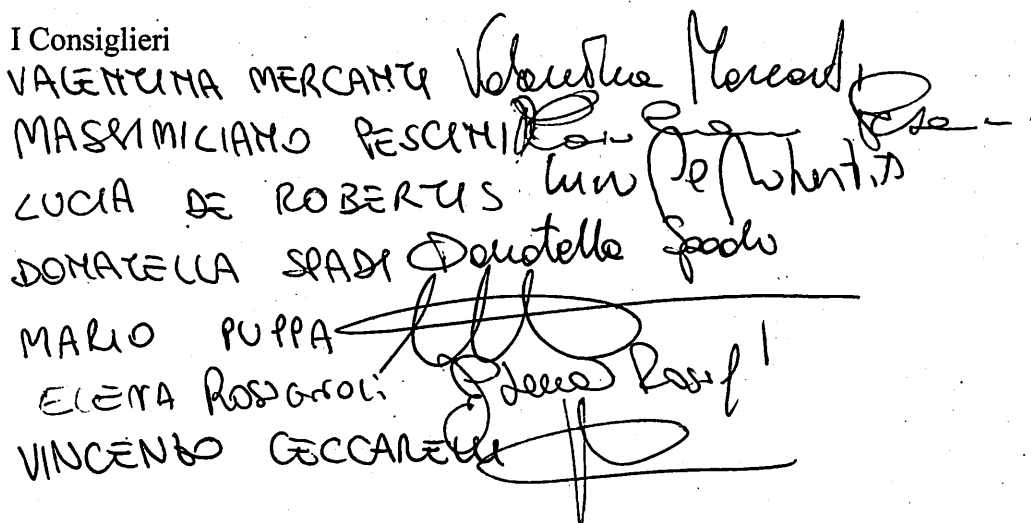 I Consiglieri
VALENTINA MERCANTI Valentina Mercanti
MASSIMILIANO PESCINI
LUCIA DE ROBERTIS Lucia De Robertis
DONATELLA SPADI Donatella Spadi
MARIO PUPPA
ELENA ROSIGNOLI Elena
VINCENZO CECCARELLI